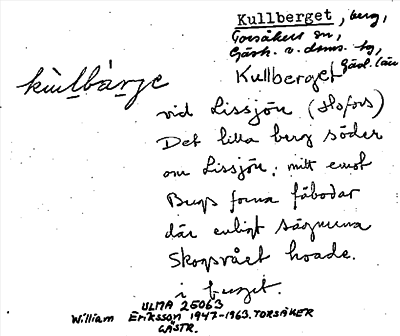 Kullberget, berg,
Torsåkers sn,
Gästr. v. doms. hg,
Gävl. län
kùlbàrje
Kullberget
vid Lissjön (Hofors)
Det lilla berg söder
om Lissjön, mitt emot
Bergs forna fäbodar
där enligt sägnerna
Skogsrået hoade.
i berget.
ULMA 25063
William Eriksson 1947-1963. TORSÅKER
GÄSTR.